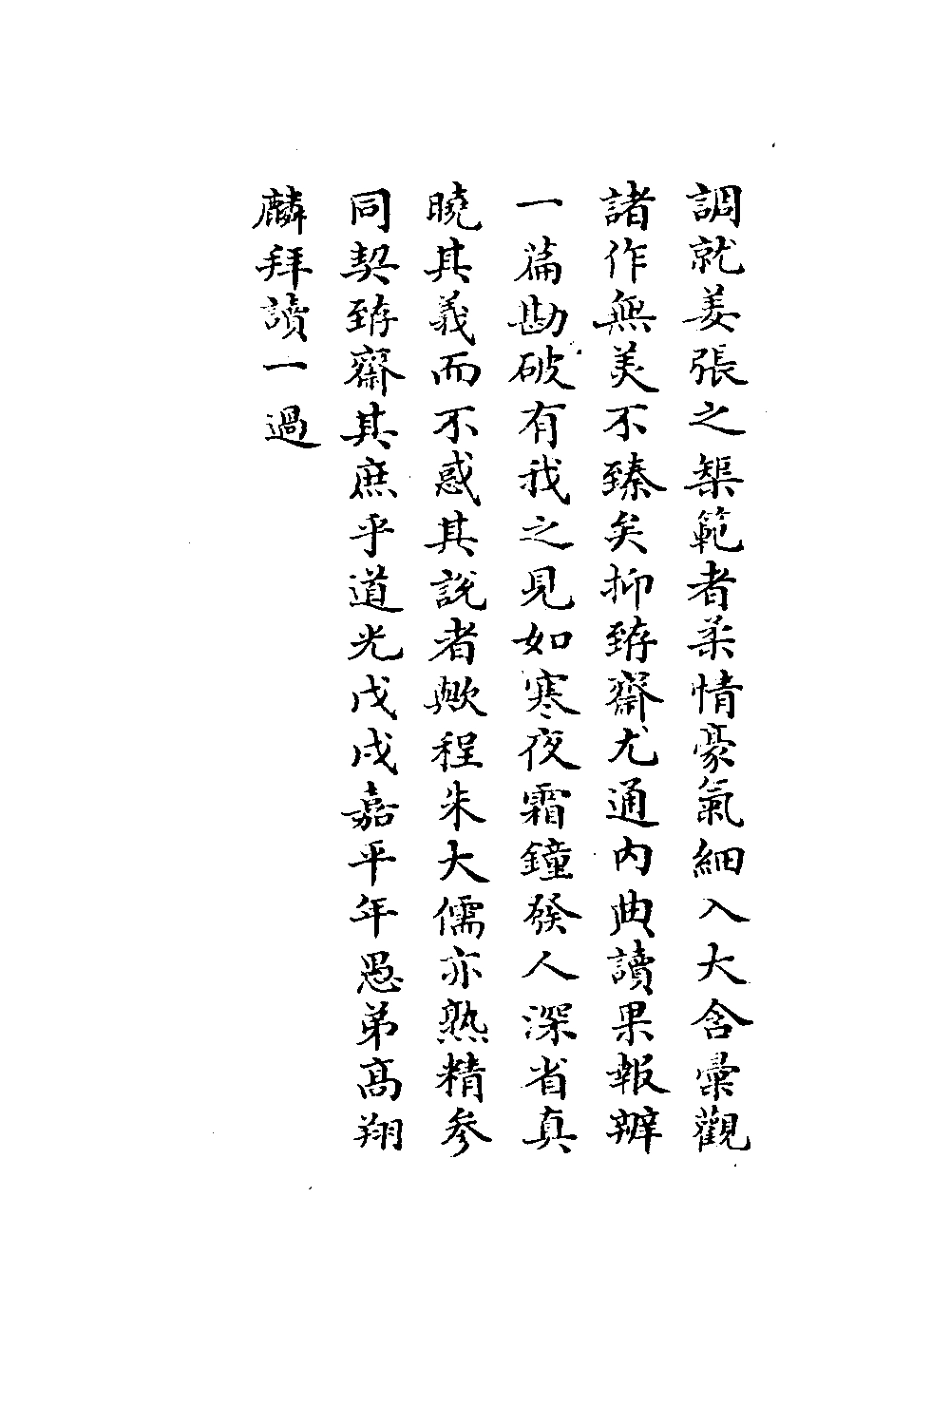 調就姜張之榘範者柔情豪氣細入大含彙觀
諸作無美不臻矣抑臶齋尤通内典讀果報辨
一篇勘破有我之見如寒夜霜鐘發人深省真
曉其義而不惑其說者歟程朱大儒亦熟精參
同契臶齋其庶乎道光戊戌嘉平年愚弟高翔
麟拜讀一過